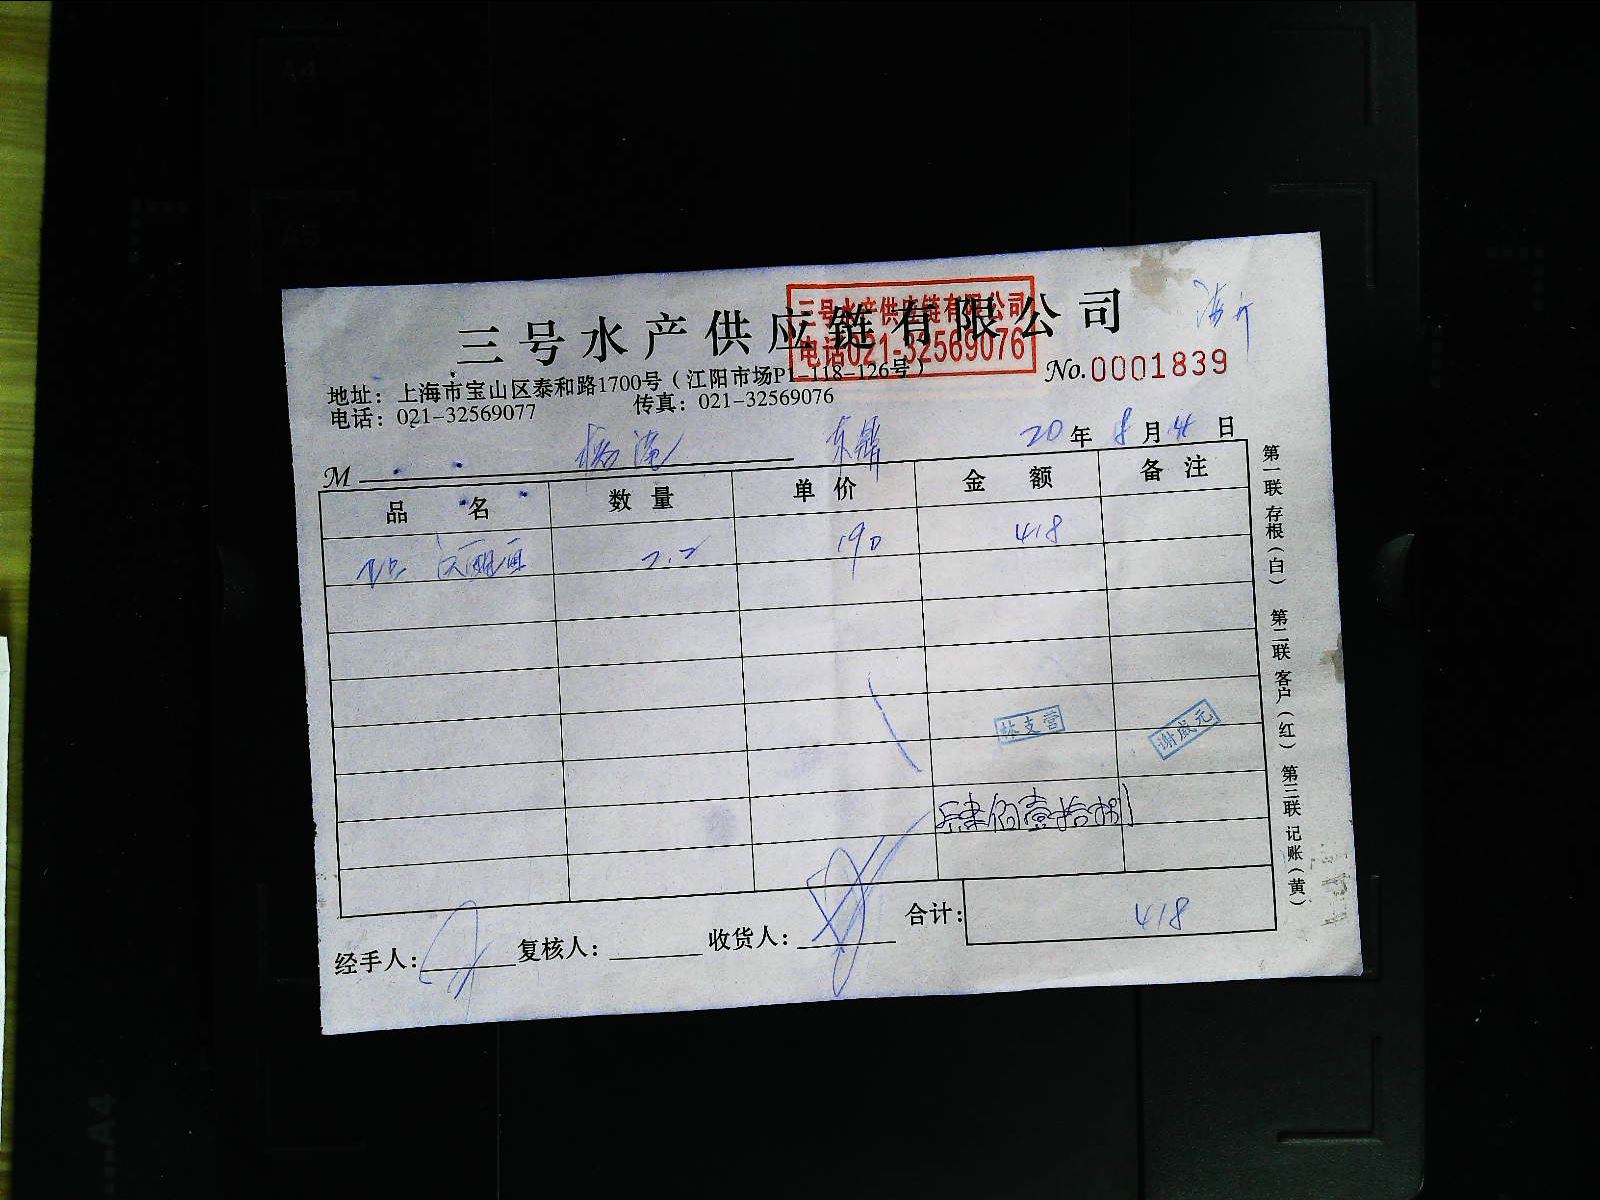 三号水产供应链有限公司
三号水产供应链有限公司
电话021-32569076
地址：上海市宝山区泰和路1700号（江阳市场P1-118-126号）
No.0001839
电话：021-32569077 传真：021-32569076
20年 8月 日
M
品名 数量 单价 金额 备注
2.2 190 418
林支营 谢咸元
肆佰壹拾捌
合计：418
经手人： 复核人： 收货人：
第一联 存根（白） 第二联 客户（红） 第三联 记账（黄）
A4
A5
A4